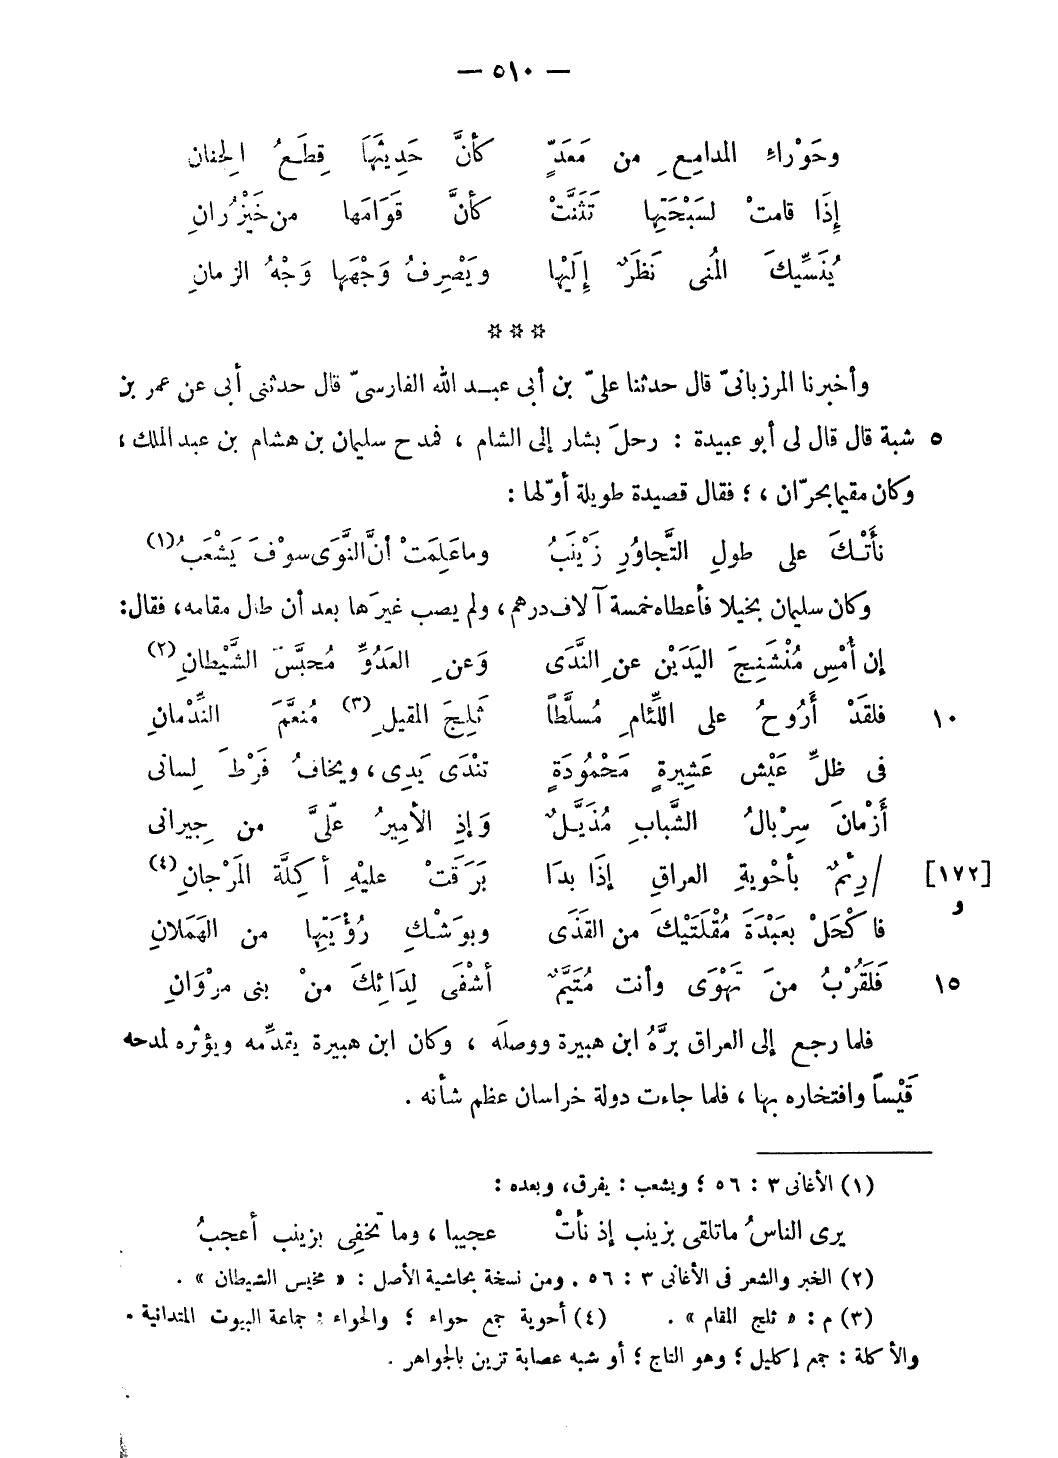 — ٥١٠ —
وحَوْراءِ المدامِعِ من مَعَدٍّ كأنَّ حَدِيثَهَا قِطَعُ الجِنان
إِذَا قامتْ لسَبْحَتِها تَثَنَّتْ كأنَّ قَوَامَها من خَيْزُرانِ
يُنَسِّيكَ المُنى نَظَرٌ إِلَيْها ويَصْرِفُ وَجْهَها وَجْهُ الزمانِ
☆ ☆ ☆
وأخبرنا المرزبانىّ قال حدثنا علىّ بن أبى عبد الله الفارسىّ قال حدثنى أبى عن عمر بن
٥ شبة قال قال لى أبو عبيدة : رحلَ بشار إلى الشام ، فمدح سليمان بن هشام بن عبد الملك ،
وكان مقيما بحرّان ، ؛ فقال قصيدة طويلة أوّلها :
نأَتْكَ على طولِ التَّجاوُرِ زَيْنَبُ وما عَلِمَتْ أنَّ النَّوَى سوْفَ يَشْعَبُ(١)
وكان سليمان بخيلا فأعطاه خمسة آلاف درهم، ولم يصب غيرَها بعد أن طال مقامه، فقال:
إن أُمْسِ مُنْشَنِجَ اليَدَيْن عن النَّدَى وَعن العَدُوِّ مُحبَّسَ الشَّيْطانِ(٢)
١٠ فلقَدْ أَرُوحُ على اللِّئَامِ مُسلَّطاً ثَلِجَ المقيلِ(٣) مُنعَّمَ النِّدْمانِ
فى ظلِّ عَيْش عَشِيرةٍ مَحْمُودَةٍ تنْدَى يَدِى ، ويخافُ فَرْطَ لِسانى
أَزْمانَ سِرْبالُ الشَّبابِ مُذَيَّلٌ وَإِذِ الأمِيرُ علَىَّ من جِيرانى
[١٧٢] / رِئْمٌ بأحْويةِ العراقِ إِذَا بدَا بَرَقَتْ عليْهِ أكِلَّةُ المَرْجانِ(٤)
و
فاكْحَلْ بعَبْدَةَ مُقْلَتَيْكَ من القَذَى وبوَشْكِ رُؤْيَتِها من الهَمَلانِ
١٥ فَلَقُرْبُ منَ تَهْوَى وأنت مُتَيَّمٌ أشْفَى لِدَائِكَ منْ بنى مرْوَانِ
فلما رجع إلى العراق برَّهُ ابن هبيرة ووصلَه ، وكان ابن هبيرة يقدِّمه ويؤثره لمدحه
قَيْساً وافتخاره بها ، فلما جاءت دولة خراسان عظم شأنه .
(١) الأغانى ٣ : ٥٦ ؛ ويشعب : يفرق، وبعده :
يرى الناسُ ما تلقى بزينب إذ نأتْ عجيبا ، وما تَخفِى بزينب أعجبُ
(٢) الخبر والشعر فى الأغانى ٣ : ٥٦ . ومن نسخة بحاشية الأصل : « مخيس الشيطان » .
(٣) م : « ثلج المقام » . (٤) أحوية جمع حواء ؛ والحواء : جماعة البيوت المتدانية .
والأكلة : جمع إكليل ؛ وهو التاج ؛ أو شبه عصابة تزين بالجواهر .